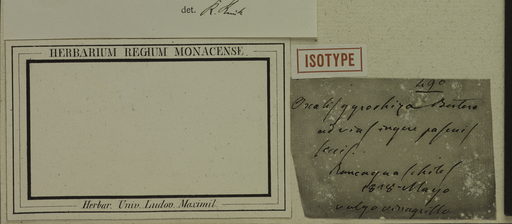 det. R. Knuth
HERBARIUM REGIUM MONACENSE.
ISOTYPE
490
Oxalis gyrorhiza Bertero
ad vias in pascuis
Rancagua Chile
1828 Mayo
vulgo vinagrillo
Herbar. Univ. Ludov. Maximil.